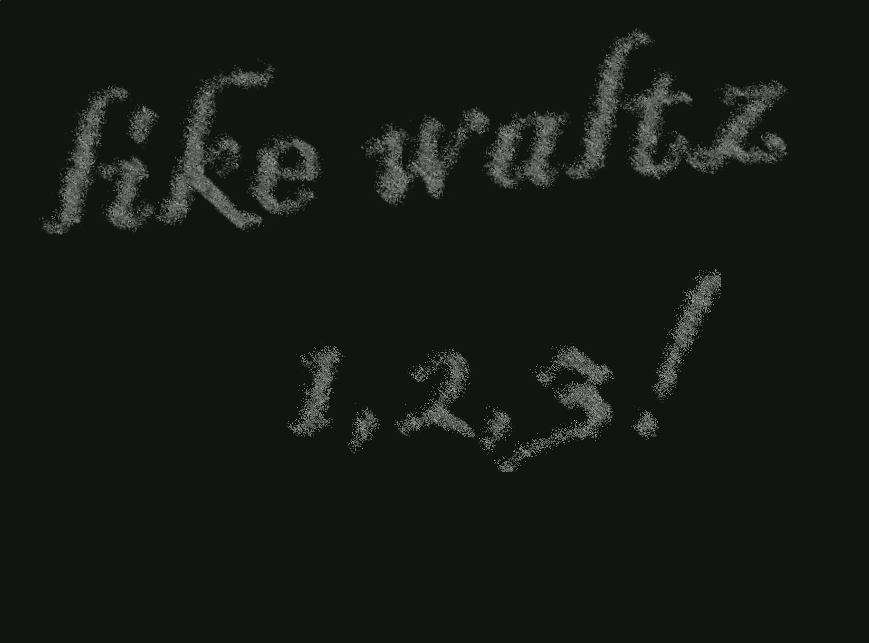 like waltz
1,2,3!